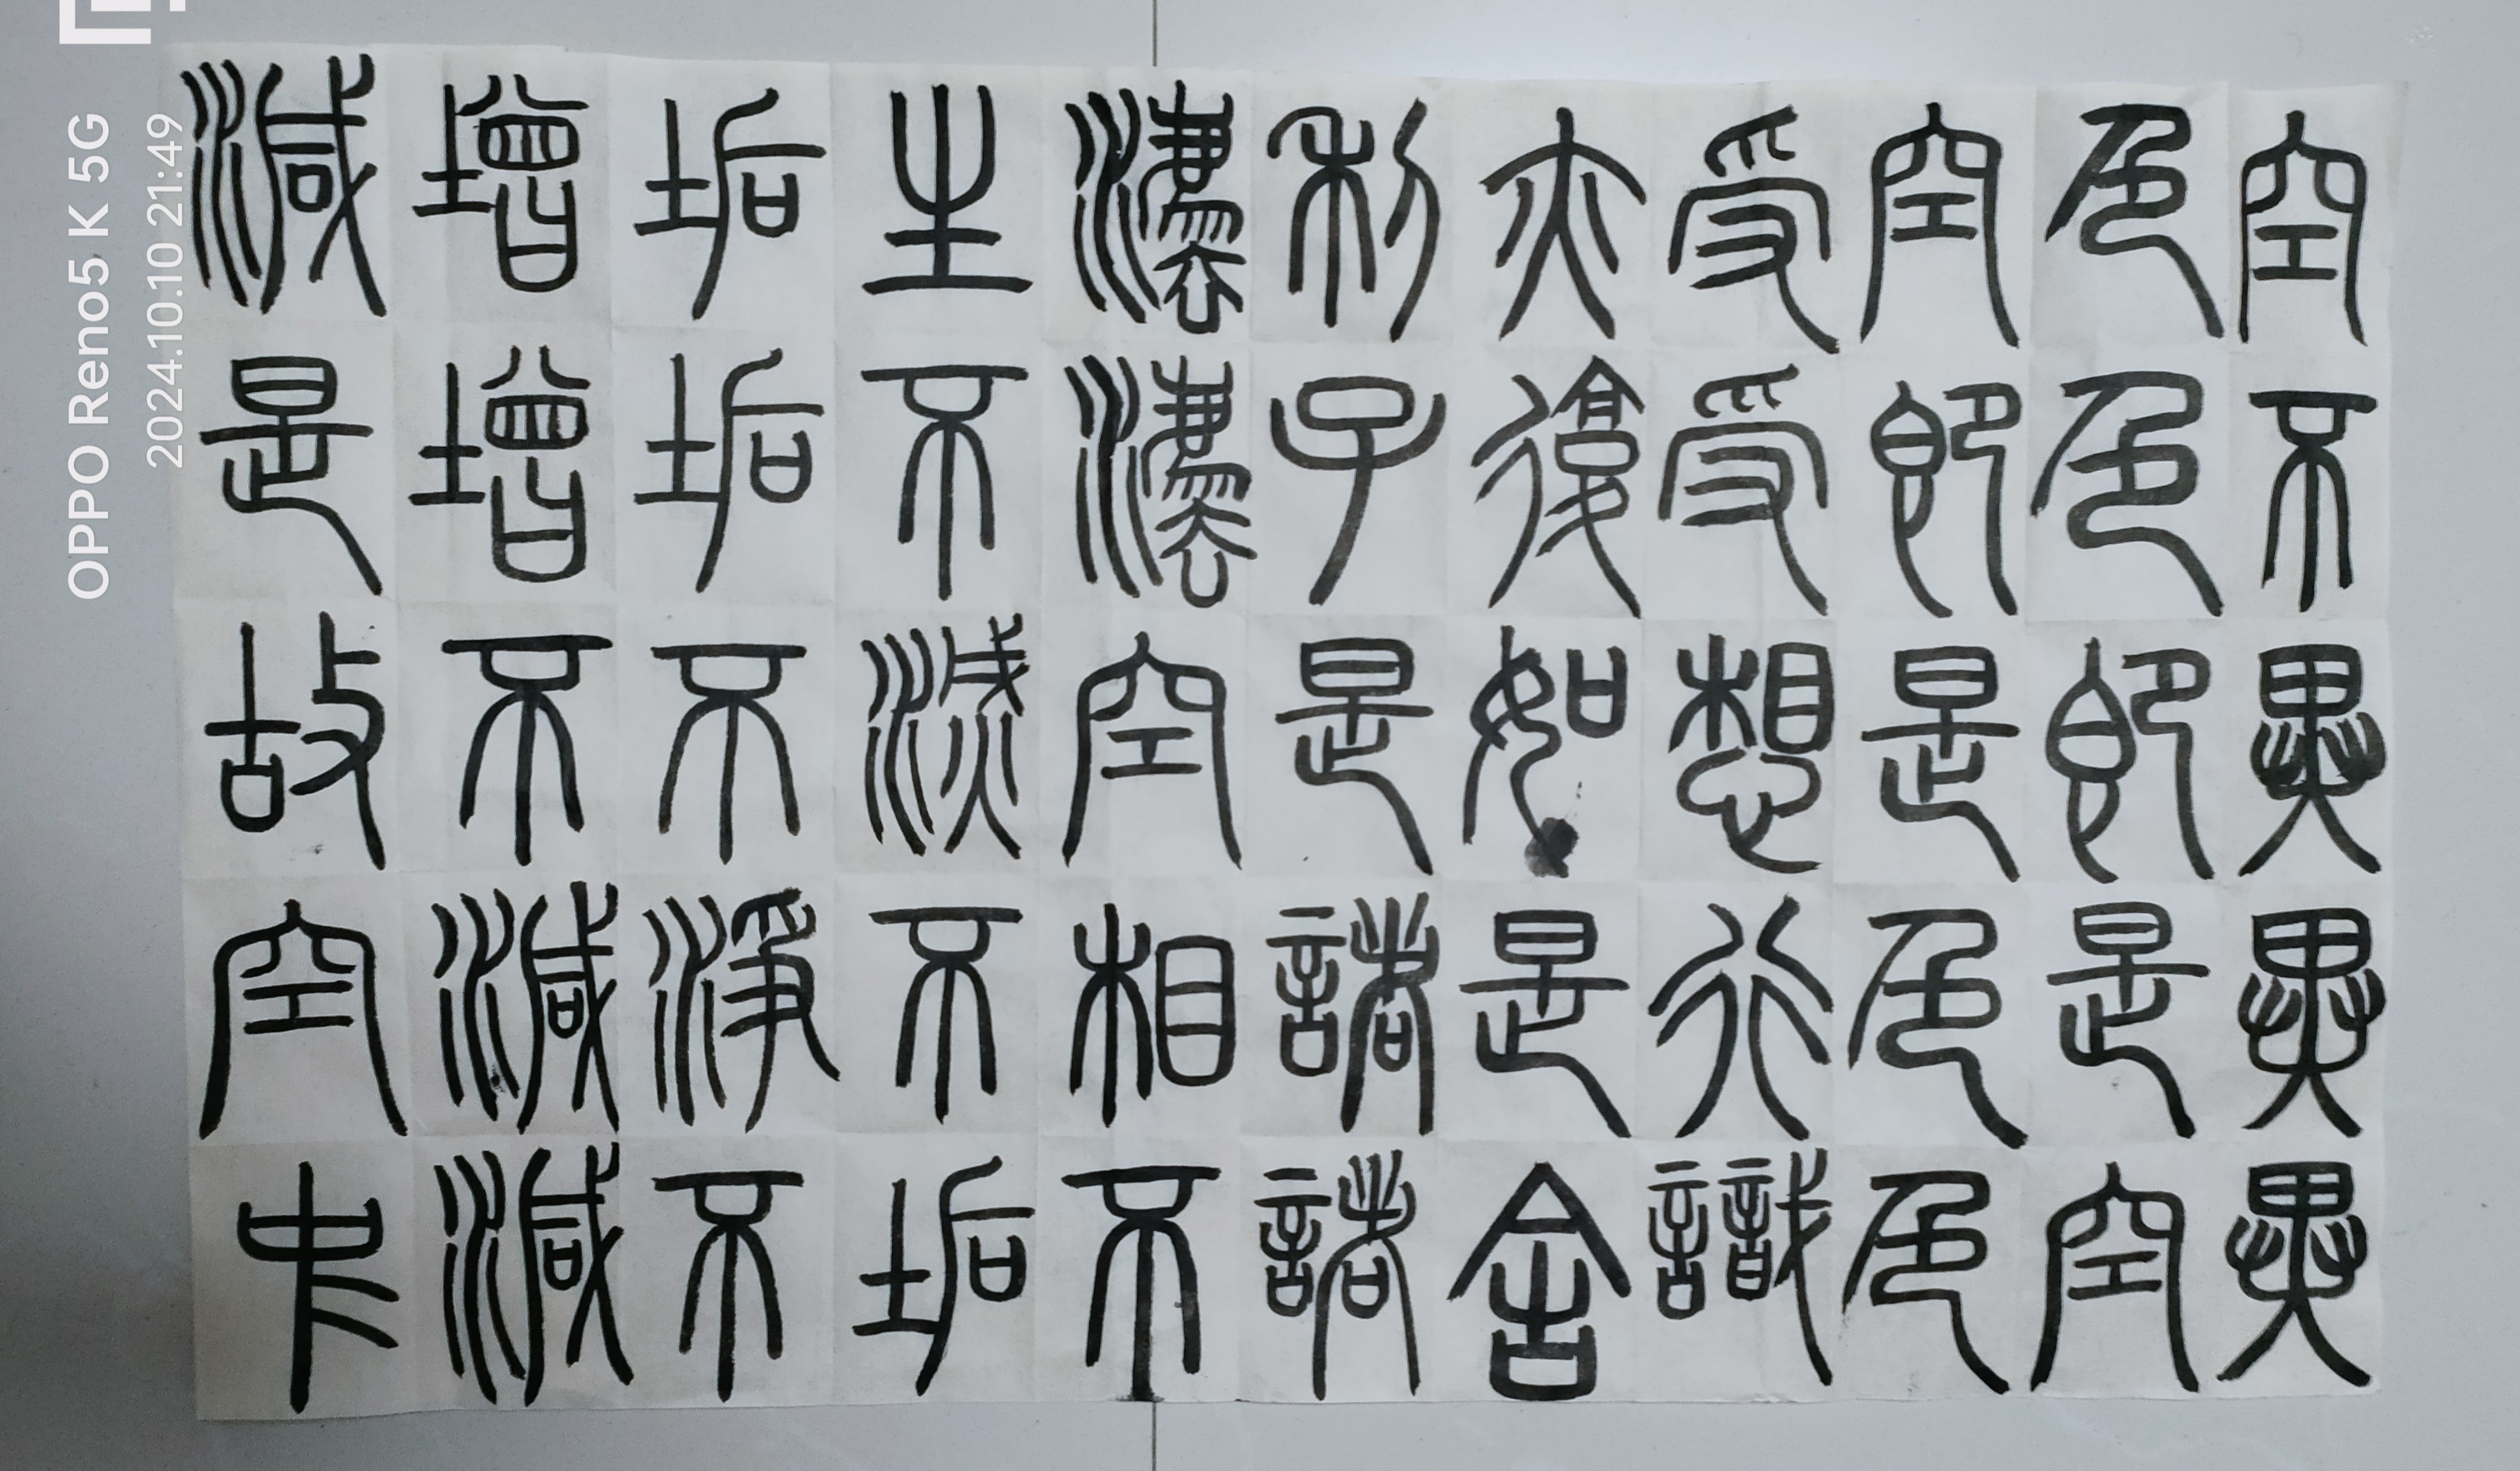 空不異異異
色色即是空
空即是色色
受受想行識
亦復如是舍
利子是諸諸
灋灋空相不
生不滅不垢
垢垢不淨不
增增不減減
減是故空中
OPPO Reno5 K 5G
2024.10.10 21:49